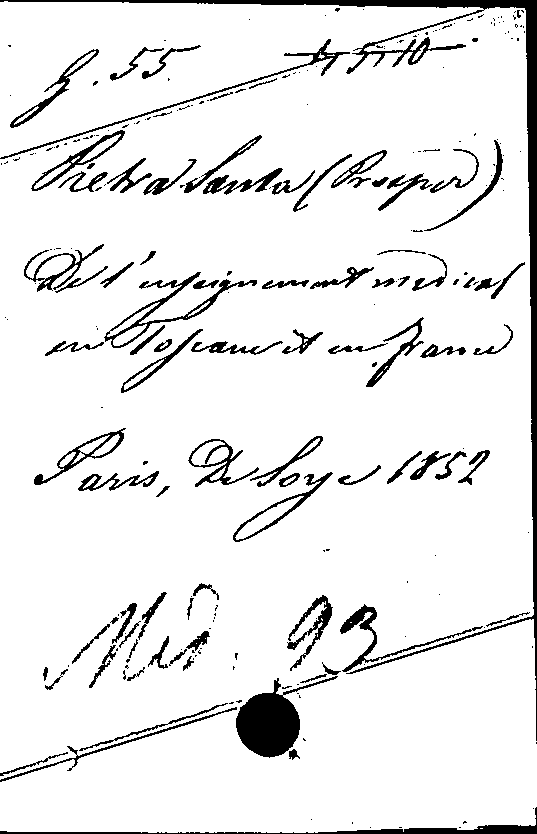 G. 55 4510
Pietra Santa (Prosper)
De l'enseignement medical
en Toscane et en france
Paris, De Soye 1852
Med. 93